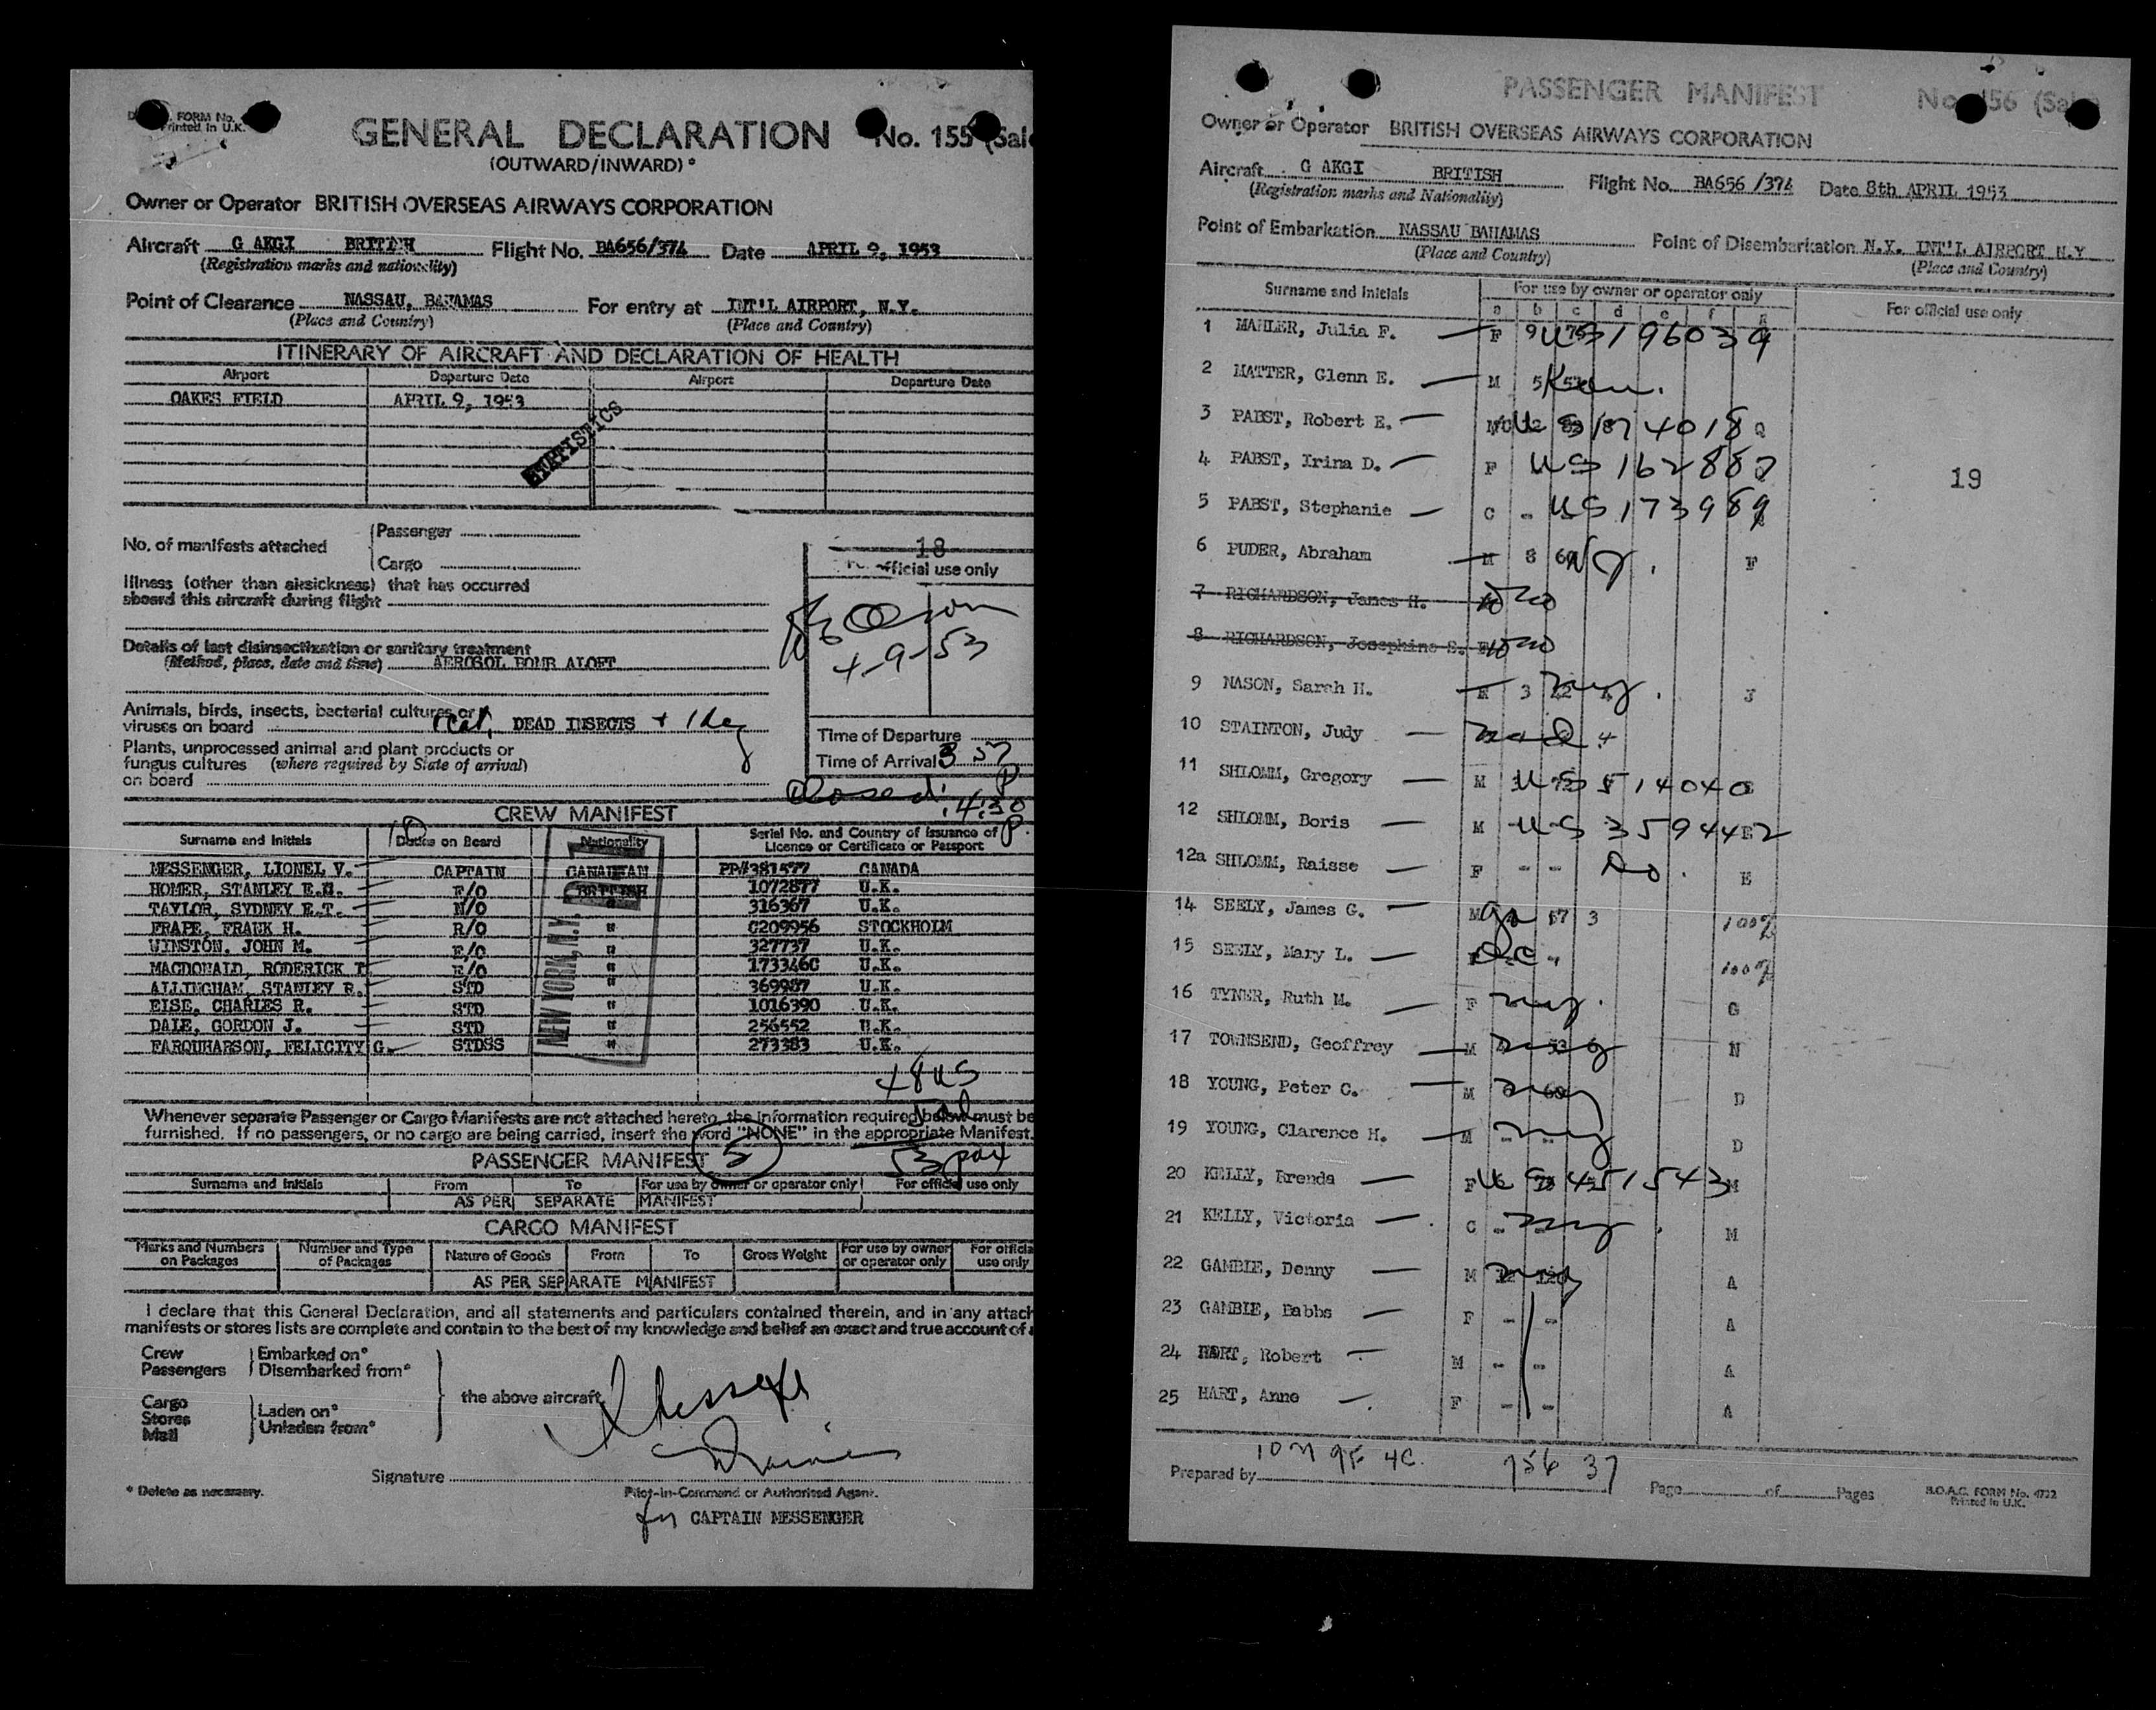 FORM No.
Printed in U.K.
GENERAL DECLARATION No. 155 (Sale
(OUTWARD/INWARD)*
Owner or Operator BRITISH OVERSEAS AIRWAYS CORPORATION
Aircraft G AKGI BRITISH Flight No. BA656/374 Date APRIL 9, 1953
(Registration marks and nationality)
Point of Clearance NASSAU, BAHAMAS For entry at INT'L AIRPORT, N.Y.
(Place and Country) (Place and Country)
ITINERARY OF AIRCRAFT AND DECLARATION OF HEALTH
Airport Departure Date Airport Departure Date
OAKES FIELD APRIL 9, 1953
STATISTICS
No. of manifests attached
Passenger
Cargo
18
official use only
Illness (other than airsickness) that has occurred
aboard this aircraft during flight
4-9-53
Details of last disinsectization or sanitary treatment
(Method, place, date and time) AEROSOL BOMB ALOFT
Animals, birds, insects, bacterial cultures or
viruses on board 1 cat, DEAD INSECTS + 1 dog
Plants, unprocessed animal and plant products or
fungus cultures (where required by State of arrival)
on board
Time of Departure
Time of Arrival 3 57 P
Closed: 4:30 P.
CREW MANIFEST
Surname and Initials Duties on Board Nationality Serial No. and Country of Issuance of Licence or Certificate or Passport
10
MESSENGER, LIONEL V. CAPTAIN CANADIAN PP#381577 CANADA
HOMER, STANLEY E.H. F/O BRITISH 1072877 U.K.
TAYLOR, SYDNEY E.T. N/O " 316367 U.K.
FRAPE, FRANK H. R/O " C209956 STOCKHOLM
WINSTON, JOHN M. E/O " 327737 U.K.
MACDONALD, RODERICK T. E/O " 173346C U.K.
ALLINGHAM, STANLEY R. STD " 369987 U.K.
EISE, CHARLES R. STD " 1016390 U.K.
DALE, GORDON J. STD " 256552 U.K.
FARQUHARSON, FELICITY G. STDSS " 273383 U.K.
NEW YORK, N.Y.
48 US
5 al
Whenever separate Passenger or Cargo Manifests are not attached hereto, the information required below must be
furnished. If no passengers, or no cargo are being carried, insert the word "NONE" in the appropriate Manifest.
PASSENGER MANIFEST 5 53 pax
Surname and Initials From To For use by owner or operator only For official use only
AS PER SEPARATE MANIFEST
CARGO MANIFEST
Marks and Numbers on Packages Number and Type of Packages Nature of Goods From To Gross Weight For use by owner or operator only For official use only
AS PER SEPARATE MANIFEST
I declare that this General Declaration, and all statements and particulars contained therein, and in any attach
manifests or stores lists are complete and contain to the best of my knowledge and belief an exact and true account of a
Crew
Passengers
Embarked on*
Disembarked from*
Cargo
Stores
Mail
Laden on*
Unladen from*
the above aircraft
Signature
* Delete as necessary.
Pilot-in-Command or Authorised Agent.
for CAPTAIN MESSENGER
PASSENGER MANIFEST No. 156 (Sale)
Owner or Operator BRITISH OVERSEAS AIRWAYS CORPORATION
Aircraft G AKGI BRITISH Flight No. BA656/374 Date 8th APRIL 1953
(Registration marks and Nationality)
Point of Embarkation NASSAU BAHAMAS Point of Disembarkation N.Y. INT'L AIRPORT N.Y
(Place and Country) (Place and Country)
Surname and Initials For use by owner or operator only For official use only
a b c d e f g
19
1 MAHLER, Julia F. F 9 US 196039
2 MATTER, Glenn E. M 5
3 PABST, Robert E. US 174018
4 PABST, Irina D. F US 162882
5 PABST, Stephanie C - US 173989
6 PUDER, Abraham M 8 F
7 RICHARDSON, James H. no
8 RICHARDSON, Josephine S. no
9 NASON, Sarah H. 3 J
10 STAINTON, Judy
11 SHLOMM, Gregory M US 514040
12 SHLOMM, Boris M US 359442
12a SHLOMM, Raisse F - - Do. E
14 SEELY, James G. M 57 3 100%
15 SEELY, Mary L. 100%
16 TYNER, Ruth M. F G
17 TOWNSEND, Geoffrey M N
18 YOUNG, Peter C. M D
19 YOUNG, Clarence H. M D
20 KELLY, Brenda F US 451543 M
21 KELLY, Victoria C M
22 GAMBLE, Denny M A
23 GAMBLE, Babbs F - - A
24 HART, Robert M - - A
25 HART, Anne F - - A
10 M 9F 4C. 756 37
Prepared by
Page of Pages
B.O.A.C. FORM No. 4722
Printed in U.K.